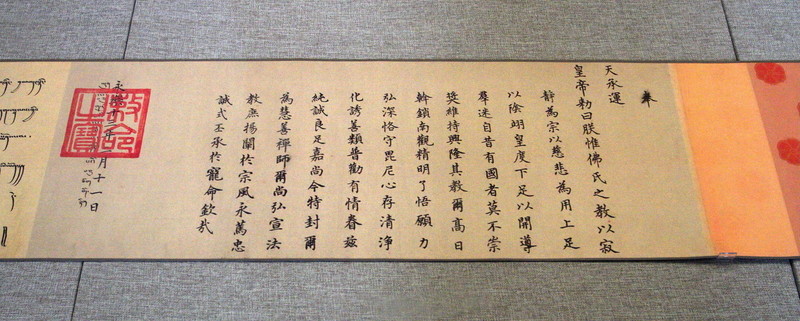 奉
天承運
皇帝勅曰朕惟佛氏之教以寂
静為宗以慈悲為用上足
以陰翊皇度下足以開導
羣迷自昔有國者莫不崇
奬維持興隆其教爾高日
幹鎖南觀精明了悟願力
弘深恪守毘尼心存清浄
化誘善類普勸有情眷兹
純誠良足嘉尚今特封爾
為慈善禪師爾尚弘宣法
教庶揚闡於宗風永萬忠
誠式丕承於寵命欽哉
永樂十年月十一日
敕命之寶